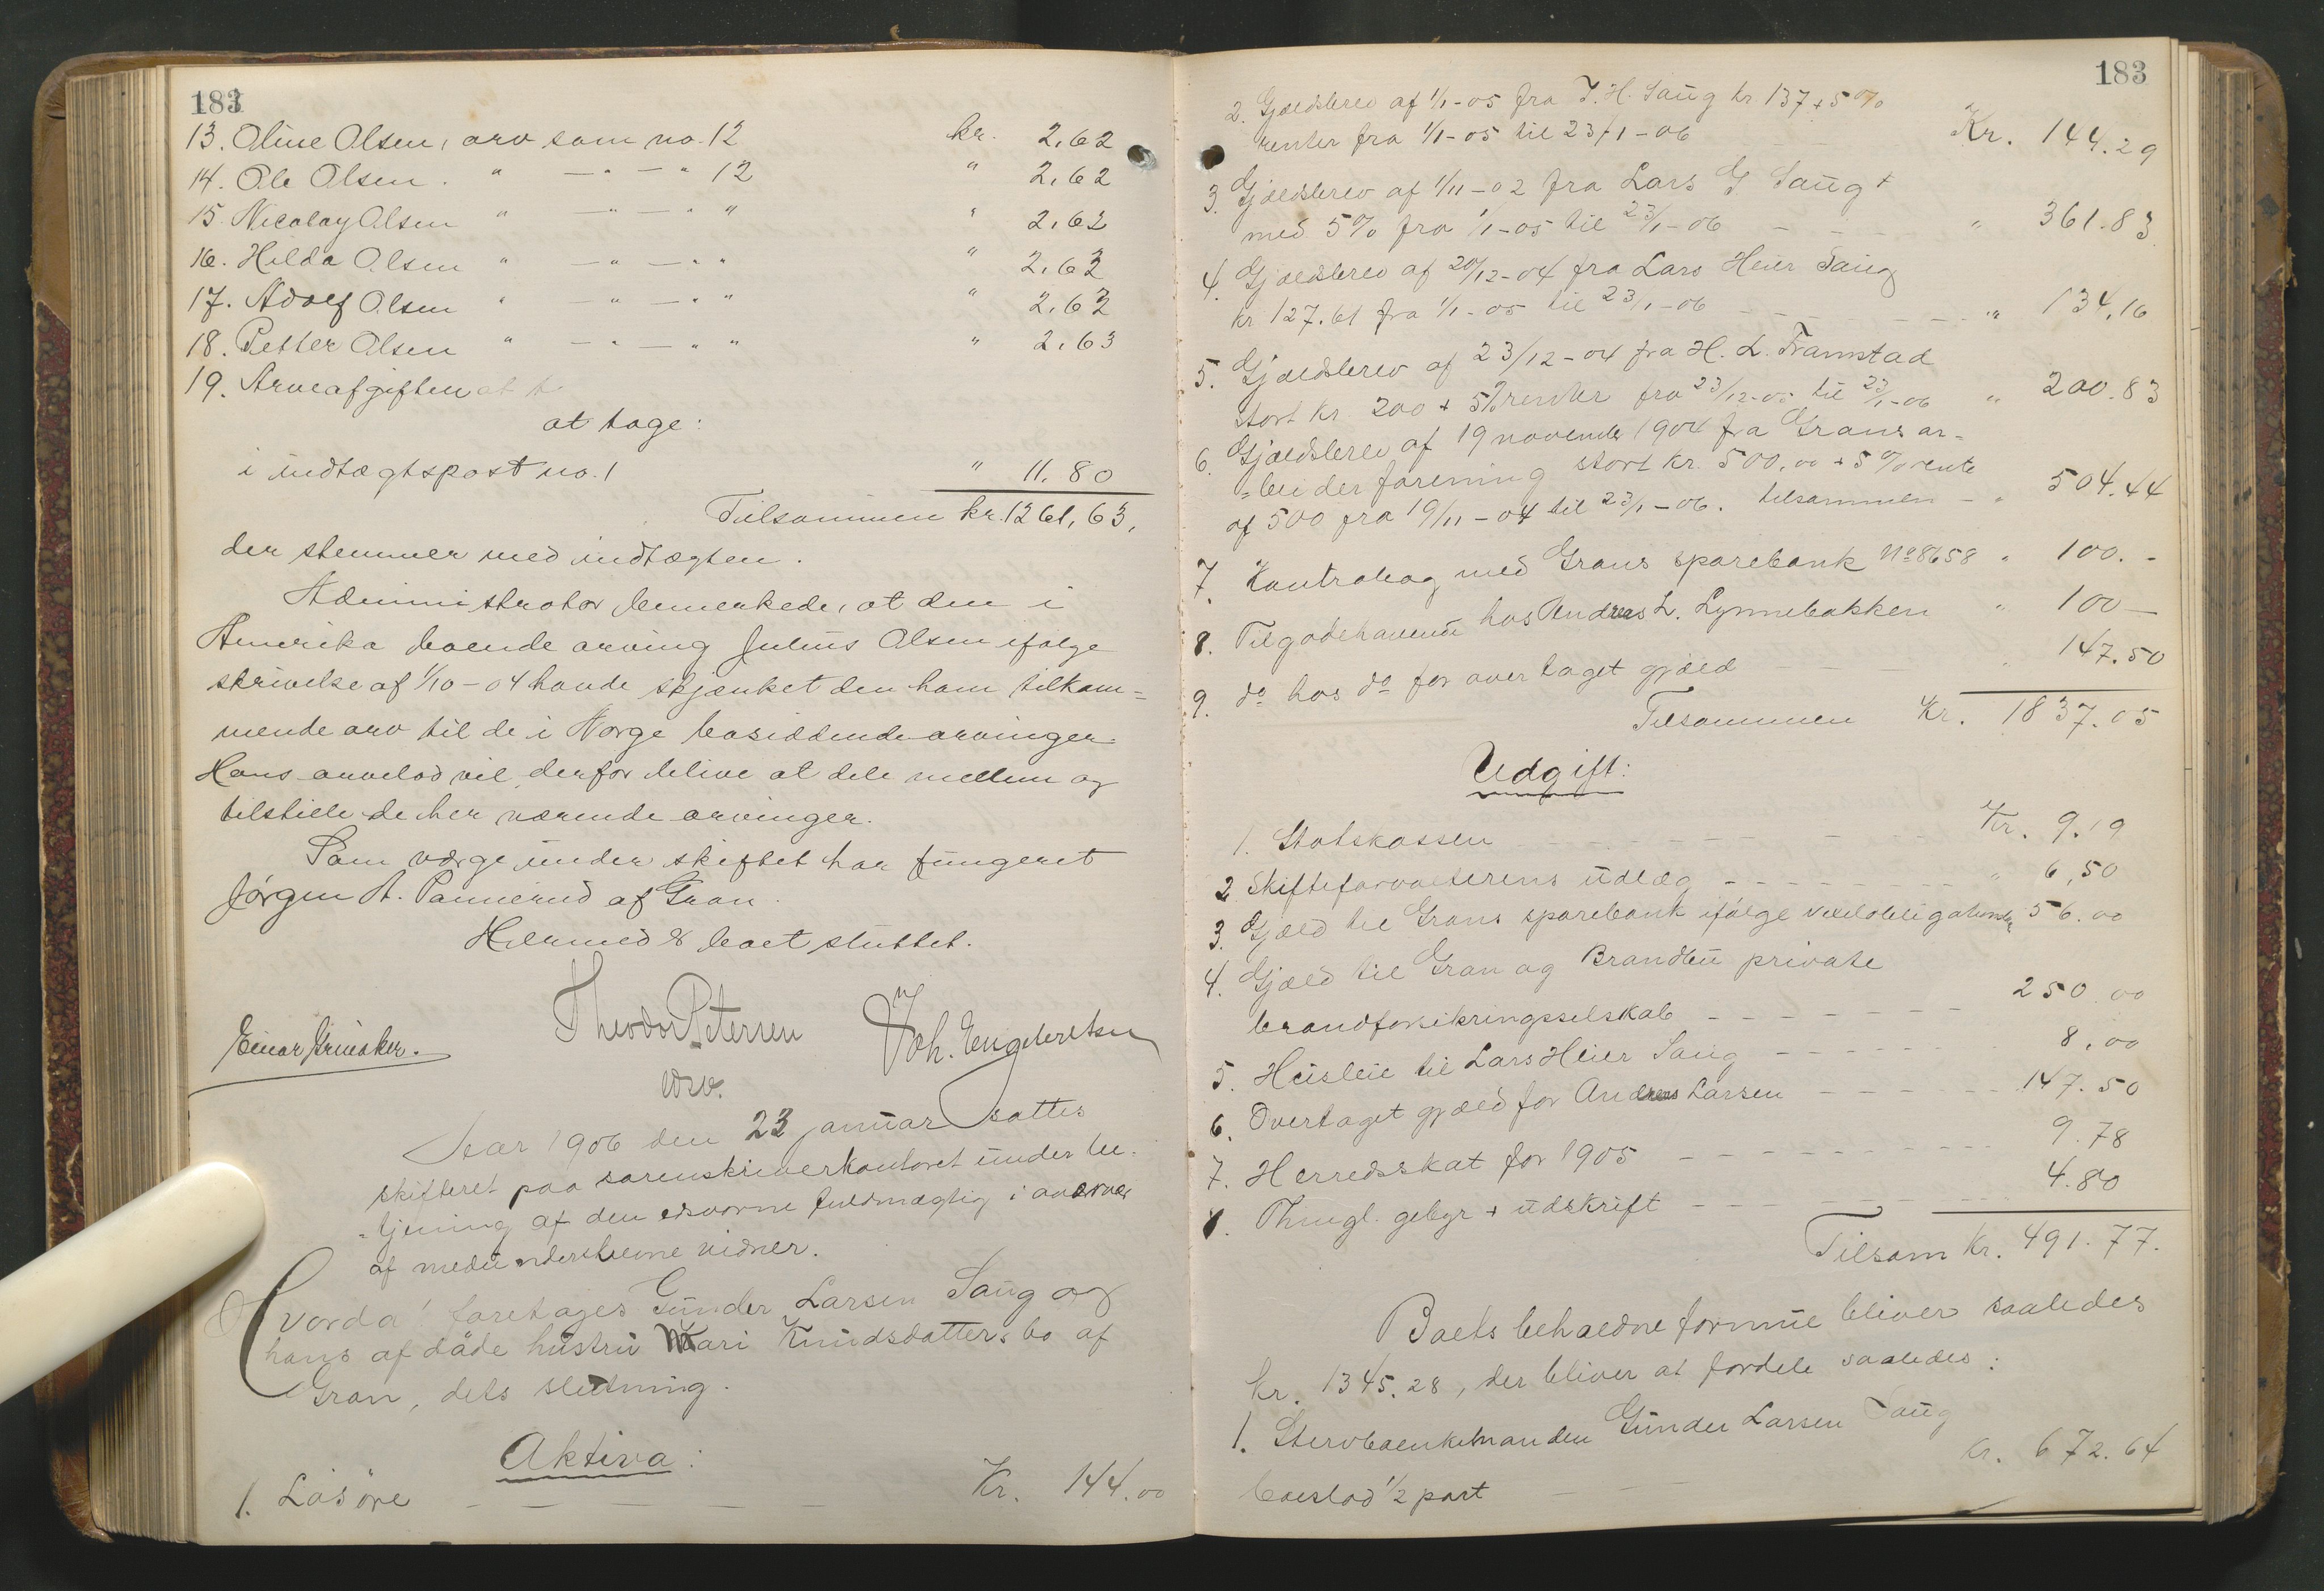 183
13. Oline Olsen, arv som no. 12 kr. 2,62
14. Ole Olsen. " — " — " 12 " 2,62
15. Nicolay Olsen " — " — " " " 2,62
16. Hilda Olsen " — " — " " " 2,62
17. Adolf Olsen " — " — " " " 2,62
18. Petter Olsen " — " — " " " 2,63
19. Arveafgiften at t
at tage:
i indtægtspost no. 1 " 11.80
Tilsammen kr. 1261,63,
der stemmer med indtægten.
Administrator bemerkede, at den i
Amerika boende arving Julius Olsen ifølge
skrivelse af 1/10-04 havde skjænket den ham tilkom=
mende arv til de i Norge bosiddende arvinger.
Hans arvelod vil derfor blive at dele mellem og
tilstille de her værende arvinger.
Som værge under skiftet har fungeret
Jørgen A. Pannerud af Gran.
Hermed er boet sluttet.
Einar Grinaker. Theodor Petersen Joh. Engebretsen
vsv.
Aar 1906 den 23 januar sattes
skifteret paa sorenskriverkontoret under be-
=tjening af den edsvorne fuldmægtig i overvær
af medunderskrevne vidner.
Hvorda! foretoges Gunder Larsen Saug og
hans afdøde hustru Kari Knudsdatters bo af
Gran, dets slutning.
Aktiva:
1. Løsøre — — — — — Kr. 144.00
183
2. Gjældsbrev af 1/1-05 fra T. H. Saug kr 137 + 5%
renter fra 1/1-05 til 23/1-06 Kr. 144.29
3. Gjældsbrev af 1/11-02 fra Lars G. Saug +
med 5% fra 1/1-05 til 23/1-06 — — — " 361.83
4. Gjældsbrev af 20/12-04 fra Lars Heier Saug
kr 127.61 fra 1/1-05 til 23/1-06 — — — " 134,16
5. Gjældsbrev af 23/12-04 fra H. L. Framstad
stort kr. 200 + 5% renter fra 23/12-05 til 23/1-06 " 200.83
6. Gjældsbrev af 19 november 1904 fra Grans ar-
=beiderforening stort kr. 500,00 + 5% rente
af 500 fra 19/11-04 til 23/1-06. tilsammen - " 504.44
7. Kontrabog med Grans sparebank No 8658 " 100.-
8. Tilgodehavende hos Andreas L. Lynnebakken " 100—
9. do hos do for overtaget gjæld — — — " 147.50
Tilsammen Kr. 1837.05
Udgift:
1. Statskassen — — — Kr. 9.19
2 Skifteforvalterens udlæg — — — " 6,50
3. Gjæld til Grans sparebank ifølge vexelobligationer 56.00
4. Gjæld til Gran og Brandbu private
brandforsikringsselskab — — — 250.00
5. Husleie til Lars Heier Saug — — — 8.00
6. Overtaget gjæld for Andreas Larsen — — — 147.50
7. Herredsskat for 1905 — — — 9.78
8. Thingl. gebyr + udskrift — — — 4.80
Tilsam kr. 491.77.
Boets beholdne formue bliver saaledes
kr. 1345.28, der bliver at fordele saaledes:
1. Stervboenkemanden Gunder Larsen Saug
boeslod 1/2 part — — kr. 672.64